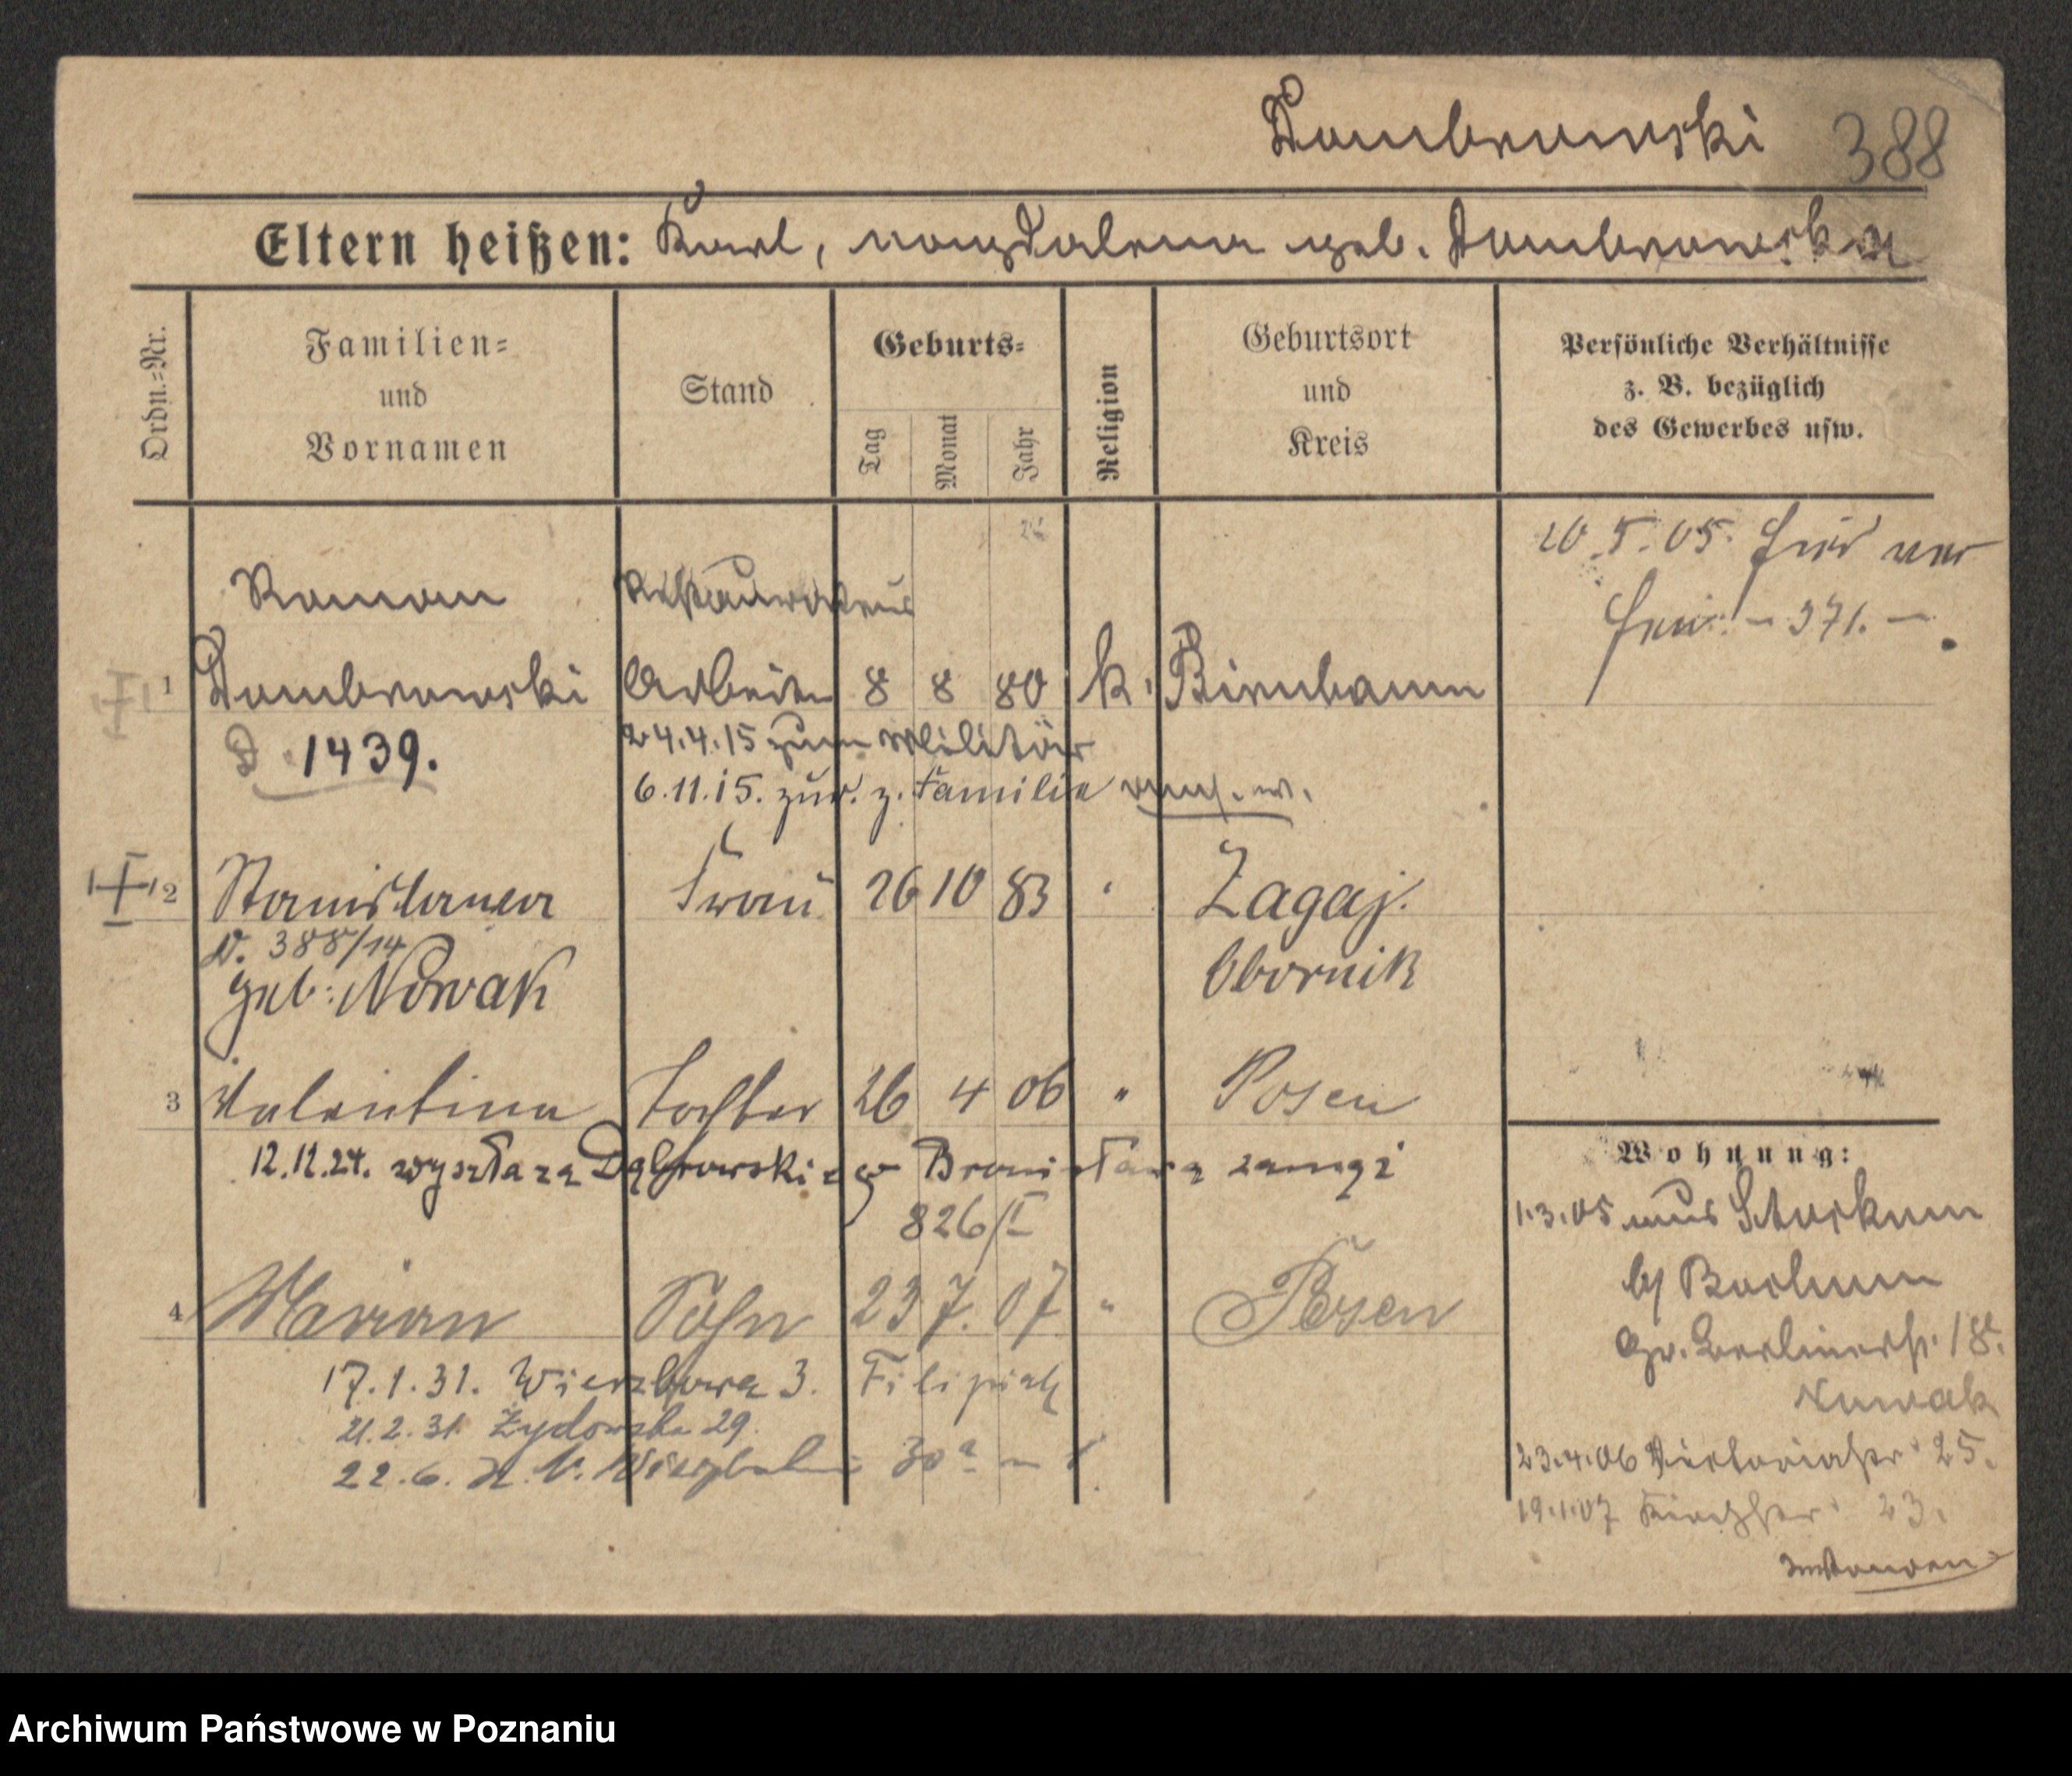 Dombrowski 388
Eltern heißen: Karl, Magdalena geb. Dombrowska
Ordn.=Nr.
Familien=
und
Vornamen
Stand
Geburts=
Tag
Monat
Jahr
Religion
Geburtsort
und
Kreis
Persönliche Verhältnisse
z. B. bezüglich
des Gewerbes usw.
20.5.05.
371. –
Roman Restaurateur
1 Dombrowski Arbeiter 8 8 80 k. Birnbaum
D 1439. 24.4.15 zum Militär
6.11.15. zur. z. Familie
2 Stanislawa Frau 26 10 83 Zagaj.
N. 388/14 Obornik
geb: Nowak
3 Valentina Tochter 26 4 06 " Posen
12.12.24. wyszła za Dąbrowskiego Bronisława zamąż
826/I
4 Marian Sohn 23 7. 07 " Posen
17.1.31. Wierzbowa 3. Filipiak
21.2.31. Żydowska 29.
22.6. 30a
Wohnung:
1.3.05 aus Stockum
b/ Bochum
Gr. Berlinerstr. 18.
Nowak
23.4.06 Victoriastr. 25.
19.1.07 23.